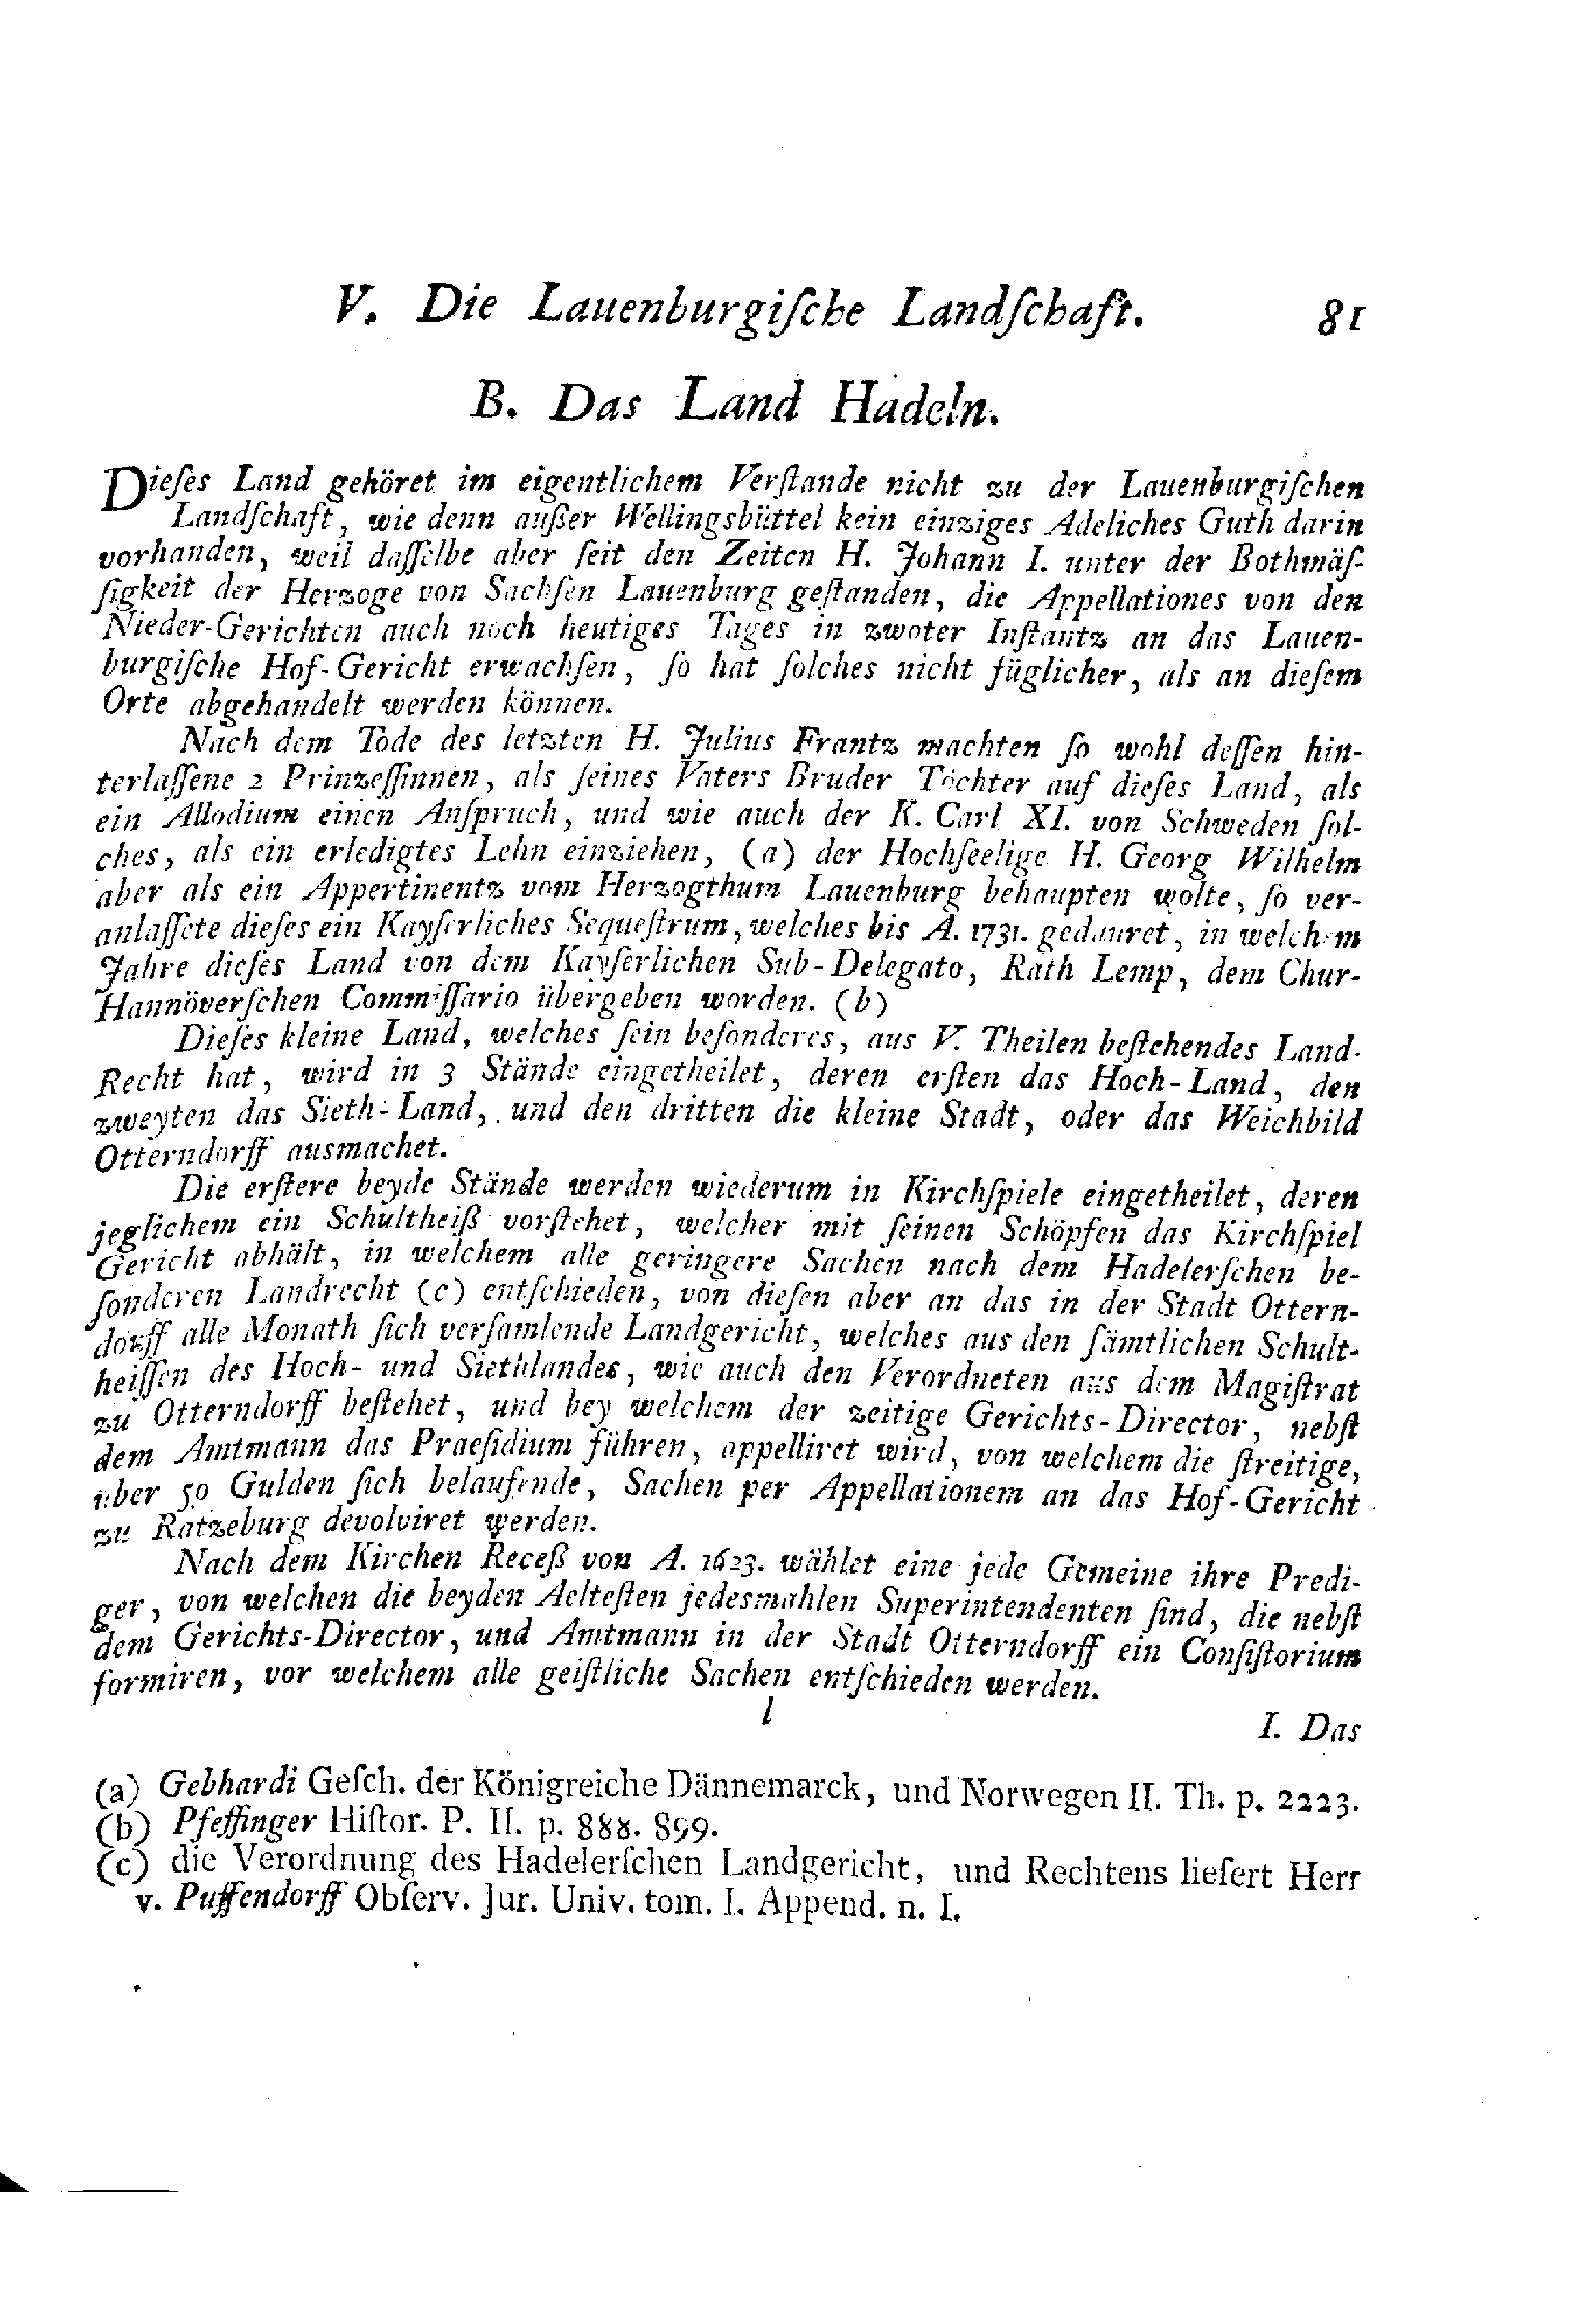 V. Die Lauenburgiſche Landſchaft. 81
B. Das Land Hadeln.
Dieſes Land gehöret im eigentlichem Verſtande nicht zu der Lauenburgiſchen
Landſchaft, wie denn außer Wellingsbüttel kein einziges Adeliches Guth darin
vorhanden, weil daſſelbe aber ſeit den Zeiten H. Johann I. unter der Bothmäſ-
ſigkeit der Herzoge von Sachſen Lauenburg geſtanden, die Appellationes von den
Nieder-Gerichten auch noch heutiges Tages in zwoter Inſtantz an das Lauen-
burgiſche Hof-Gericht erwachſen, ſo hat ſolches nicht füglicher, als an dieſem
Orte abgehandelt werden können.
Nach dem Tode des letzten H. Julius Frantz machten ſo wohl deſſen hin-
terlaſſene 2 Prinzeſſinnen, als ſeines Vaters Bruder Töchter auf dieſes Land, als
ein Allodium einen Anſpruch, und wie auch der K. Carl XI. von Schweden ſol-
ches, als ein erledigtes Lehn einziehen, (a) der Hochſeelige H. Georg Wilhelm
aber als ein Appertinentz vom Herzogthum Lauenburg behaupten wolte, ſo ver-
anlaſſete dieſes ein Kayſerliches Sequeſtrum, welches bis A. 1731. gedauret, in welchem
Jahre dieſes Land von dem Kayſerlichen Sub-Delegato, Rath Lemp, dem Chur-
Hannöverſchen Commiſſario übergeben worden. (b)
Dieſes kleine Land, welches ſein beſonderes, aus V. Theilen beſtehendes Land-
Recht hat, wird in 3 Stände eingetheilet, deren erſten das Hoch-Land, den
zweyten das Sieth-Land, und den dritten die kleine Stadt, oder das Weichbild
Otterndorff ausmachet.
Die erſtere beyde Stände werden wiederum in Kirchſpiele eingetheilet, deren
jeglichem ein Schultheiß vorſtehet, welcher mit ſeinen Schöpfen das Kirchſpiel
Gericht abhält, in welchem alle geringere Sachen nach dem Hadelerſchen be-
ſonderen Landrecht (c) entſchieden, von dieſen aber an das in der Stadt Ottern-
dorff alle Monath ſich verſamlende Landgericht, welches aus den ſämtlichen Schult-
heiſſen des Hoch- und Siethlandes, wie auch den Verordneten aus dem Magiſtrat
zu Otterndorff beſtehet, und bey welchem der zeitige Gerichts-Director, nebſt
dem Amtmann das Praeſidium führen, appelliret wird, von welchem die ſtreitige,
über 50 Gulden ſich belaufende, Sachen per Appellationem an das Hof-Gericht
zu Ratzeburg devolviret werden.
Nach dem Kirchen Receß von A. 1623. wählet eine jede Gemeine ihre Predi-
ger, von welchen die beyden Aelteſten jedesmahlen Superintendenten ſind, die nebſt
dem Gerichts-Director, und Amtmann in der Stadt Otterndorff ein Conſiſtorium
formiren, vor welchem alle geiſtliche Sachen entſchieden werden.
l
I. Das
(a) Gebhardi Geſch. der Königreiche Dännemarck, und Norwegen II. Th. p. 2223.
(b) Pfeffinger Hiſtor. P. II. p. 888. 899.
(c) die Verordnung des Hadelerſchen Landgericht, und Rechtens liefert Herr
v. Puffendorff Obſerv. Jur. Univ. tom. I. Append. n. I.